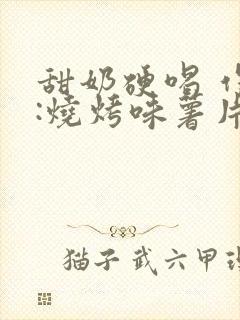 甜奶硬唱
:燒烤味薯片
猫子 武六甲